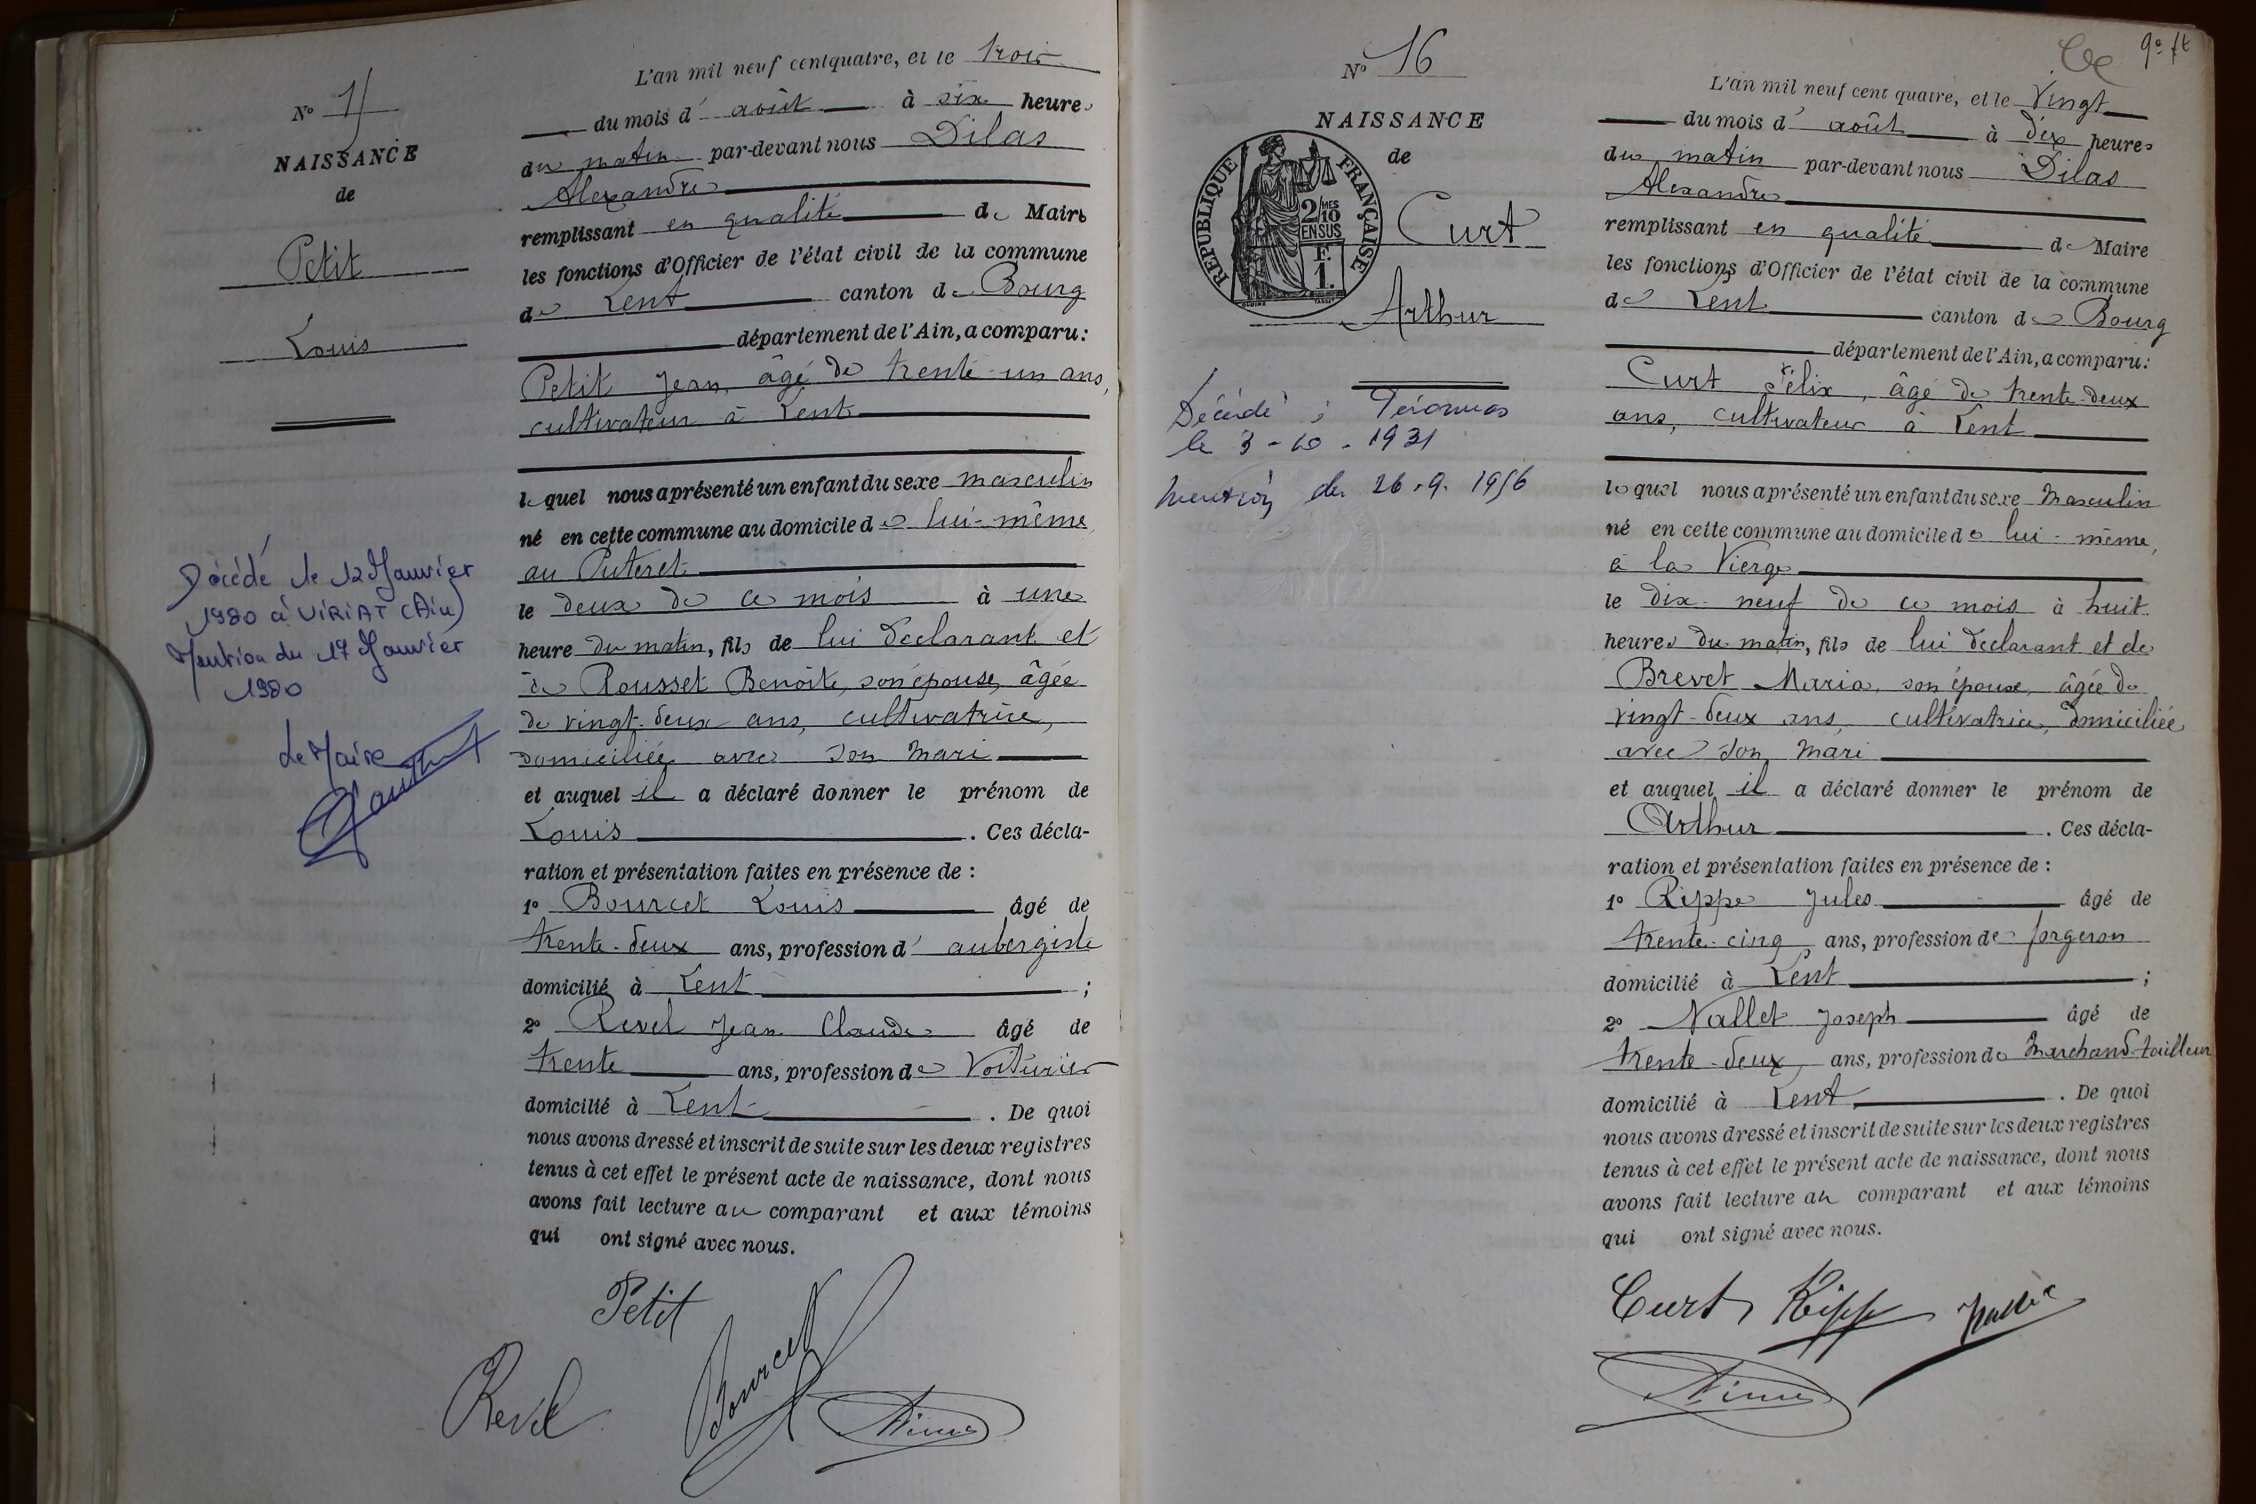 L'an mil neuf cent quatre, et le trois
du mois d' août à six heures
du matin par-devant nous Dilas
Alexandre
remplissant en qualité de Maire
les fonctions d'Officier de l'état civil de la commune
de Lent canton de Bourg
département de l'Ain, a comparu:
Petit Jean, âgé de trente-un ans,
cultivateur à Lent
lequel nous a présenté un enfant du sexe masculin
né en cette commune au domicile de lui-même
au Puteret
le deux de ce mois à une
heure du matin, fils de lui déclarant et
de Rousset Benoîte, son épouse, âgée
de vingt-deux ans, cultivatrice,
domiciliée avec son mari
et auquel il a déclaré donner le prénom de
Louis . Ces décla-
ration et présentation faites en présence de :
1º Bourcet Louis âgé de
trente-deux ans, profession d' aubergiste
domicilié à Lent ;
2º Revel Jean Claude âgé de
trente ans, profession de Voiturier
domicilié à Lent . De quoi
nous avons dressé et inscrit de suite sur les deux registres
tenus à cet effet le présent acte de naissance, dont nous
avons fait lecture au comparant et aux témoins
qui ont signé avec nous.
Petit
Revel Bourcet
Nº 15
NAISSANCE
de
Petit
Louis
Décédé le 12 Janvier
1980 à VIRIAT (Ain)
Mention du 17 Janvier
1980
Le Maire
Nº 16
NAISSANCE
de
Curt
Arthur
RÉPUBLIQUE FRANÇAISE
2/10 MES
EN SUS
F.
1.
Décédé à Péronnas
le 3-10-1931
Mention du 26.9.1956
9º ft
L'an mil neuf cent quatre, et le vingt
du mois d' août à dix heures
du matin par-devant nous Dilas
Alexandre
remplissant en qualité de Maire
les fonctions d'Officier de l'état civil de la commune
de Lent canton de Bourg
département de l'Ain, a comparu:
Curt Félix, âgé de trente-deux
ans, cultivateur à Lent
lequel nous a présenté un enfant du sexe masculin
né en cette commune au domicile de lui-même,
à la Vierge
le dix-neuf de ce mois à huit
heures du matin, fils de lui déclarant et de
Brevet Maria, son épouse, âgée de
vingt-deux ans, cultivatrice, domiciliée
avec son mari
et auquel il a déclaré donner le prénom de
Arthur . Ces décla-
ration et présentation faites en présence de :
1º Rippe Jules âgé de
trente-cinq ans, profession de forgeron
domicilié à Lent ;
2º Nallet Joseph âgé de
trente-deux, ans, profession de Marchand-tailleur
domicilié à Lent . De quoi
nous avons dressé et inscrit de suite sur les deux registres
tenus à cet effet le présent acte de naissance, dont nous
avons fait lecture au comparant et aux témoins
qui ont signé avec nous.
Curt Rippe Nallet